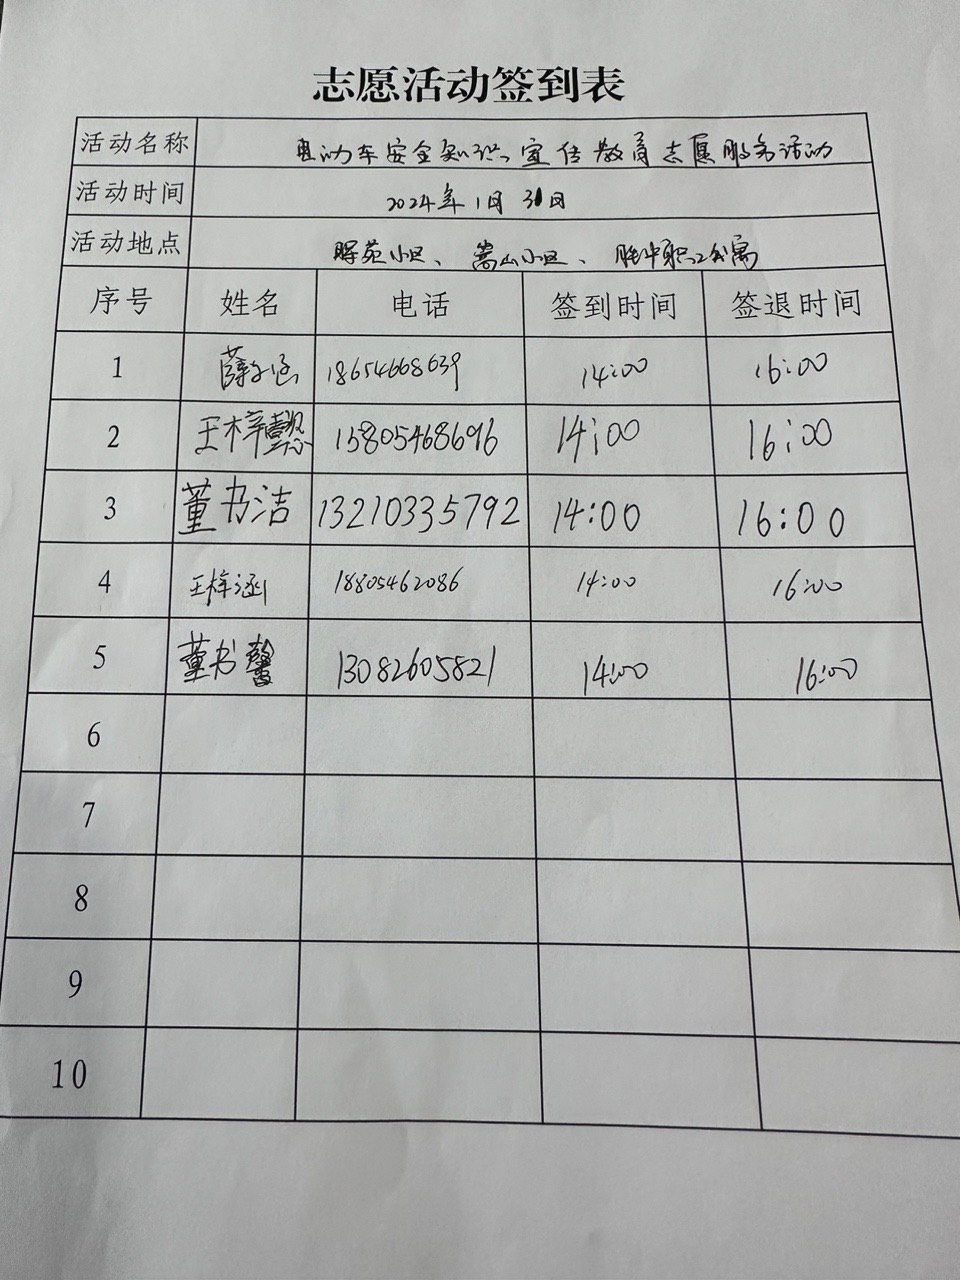 志愿活动签到表
活动名称 电动车安全知识宣传教育志愿服务活动
活动时间 2024年1月31日
活动地点 辉苑小区、嵩山小区、胜中职工公寓
序号 姓名 电话 签到时间 签退时间
1 薛子涵 18654668639 14:00 16:00
2 王梓懿 15805468696 14:00 16:00
3 董书洁 13210335792 14:00 16:00
4 王梓涵 18805462086 14:00 16:00
5 董书馨 13082605821 14:00 16:00
6
7
8
9
10